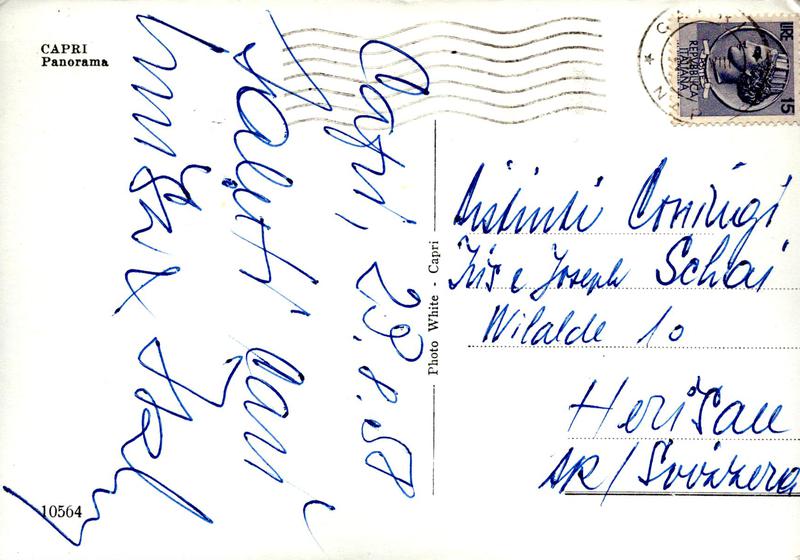 CAPRI
Panorama
Capri, 28.8.58
Saluti cari
Photo White - Capri
10564
LIRE 15
REPVBBLICA
ITALIANA
Distinti Coniugi
Iris e Joseph Schai
Wilalde 10
Herisau
AR/Svizzera